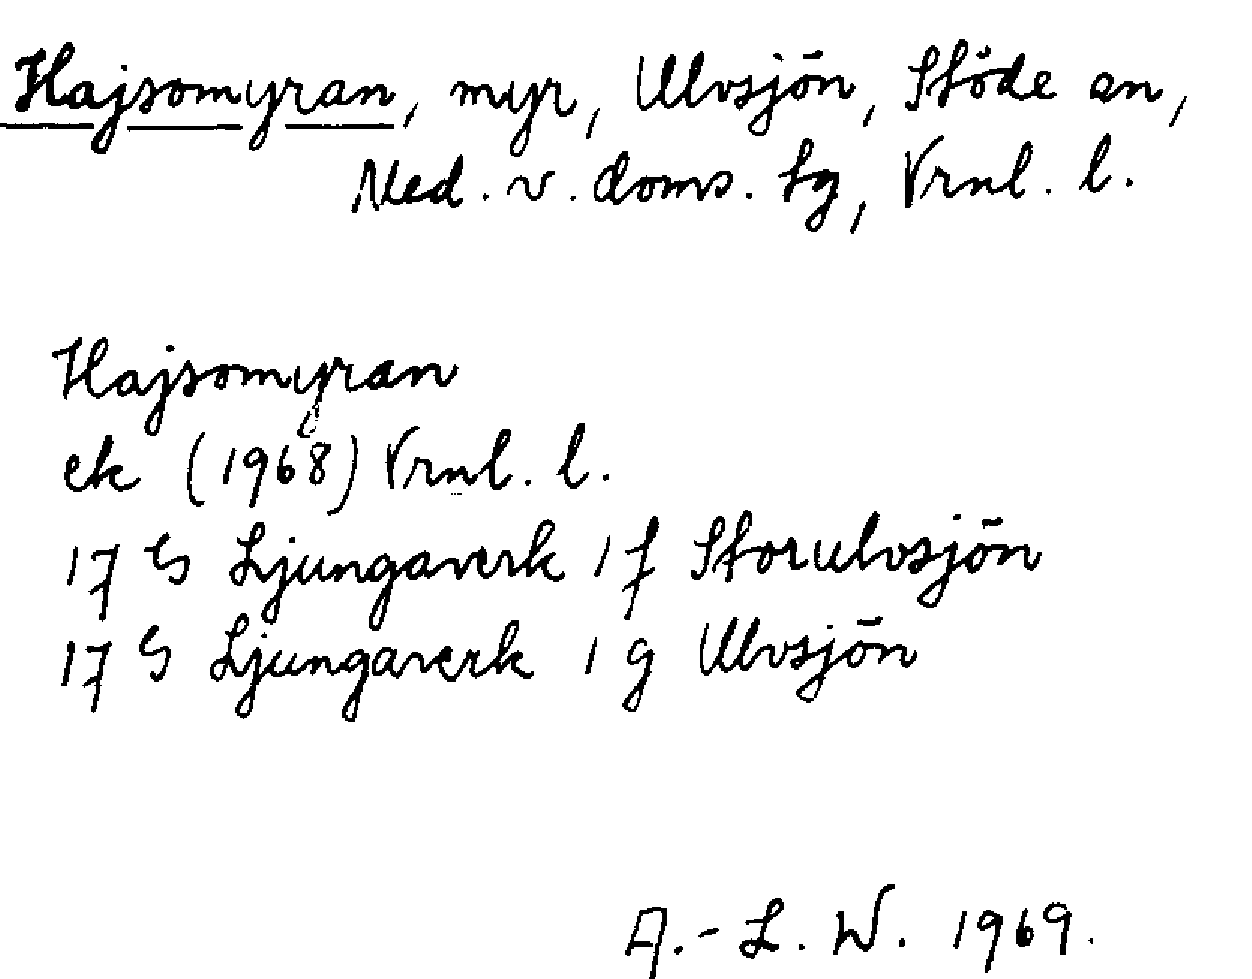 Hajsomyran, myr, Ulvsjön, Stöde sn,
Med. v. doms. tg, Vrnl. l.
Hajsomyran
ek (1968) Vrnl. l.
17 G Ljungaverk 1 f Storulvsjön
17 G Ljungaverk 1 g Ulvsjön
A.-L. W. 1969.